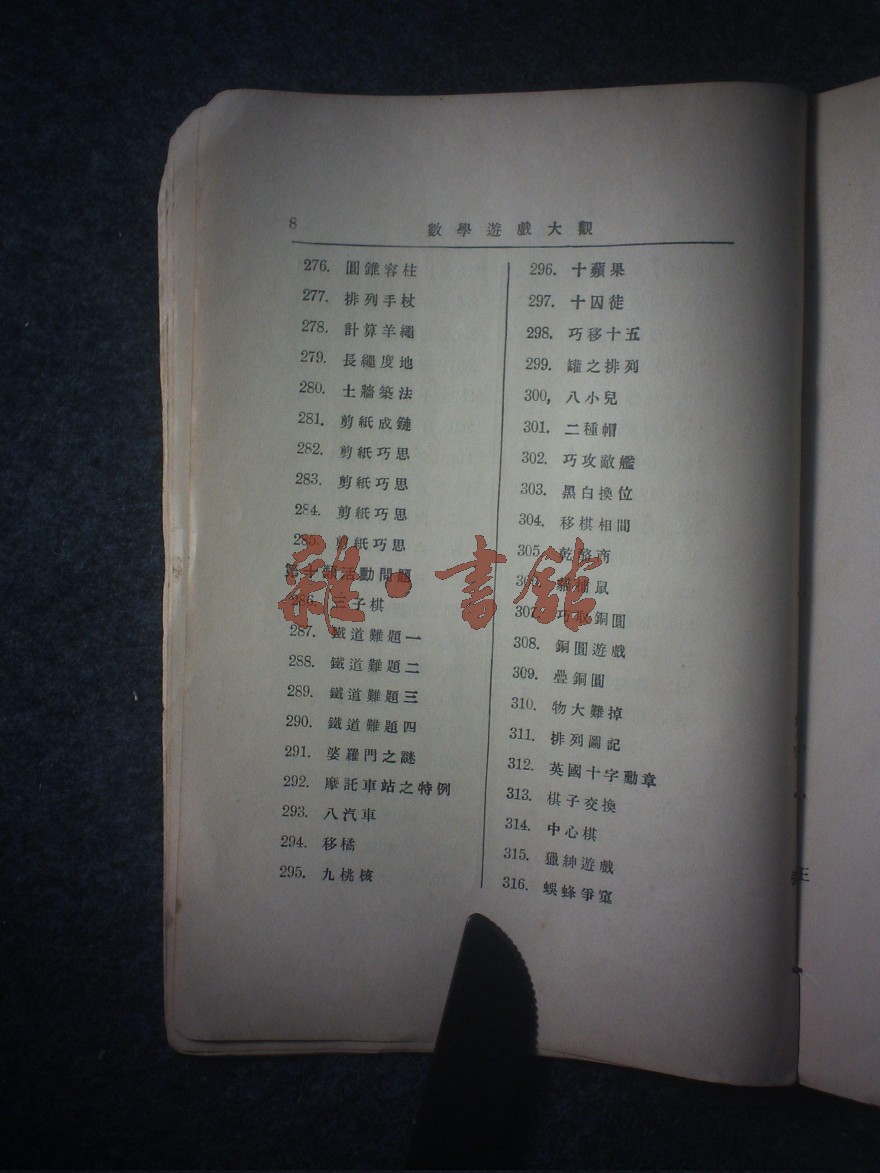 8
數學遊戲大觀
276. 圓錐容柱
277. 排列手杖
278. 計算羊繩
279. 長繩度地
280. 土牆築法
281. 剪紙成鏈
282. 剪紙巧思
283. 剪紙巧思
284. 剪紙巧思
285. 剪紙巧思
第十類活動問題
286. 三子棋
287. 鐵道難題一
288. 鐵道難題二
289. 鐵道難題三
290. 鐵道難題四
291. 婆羅門之謎
292. 摩託車站之特例
293. 八汽車
294. 移橘
295. 九桃核
296. 十蘋果
297. 十囚徒
298. 巧移十五
299. 罐之排列
300, 八小兒
301. 二種帽
302. 巧攻敵艦
303. 黑白換位
304. 移棋相間
305. 乾酪商
306. 貓捕鼠
307. 巧取銅圓
308. 銅圓遊戲
309. 疊銅圓
310. 物大難掉
311. 排列圖記
312. 英國十字勳章
313. 棋子交換
314. 中心棋
315. 獵紳遊戲
316. 蜈蜂爭窠
雜·書館